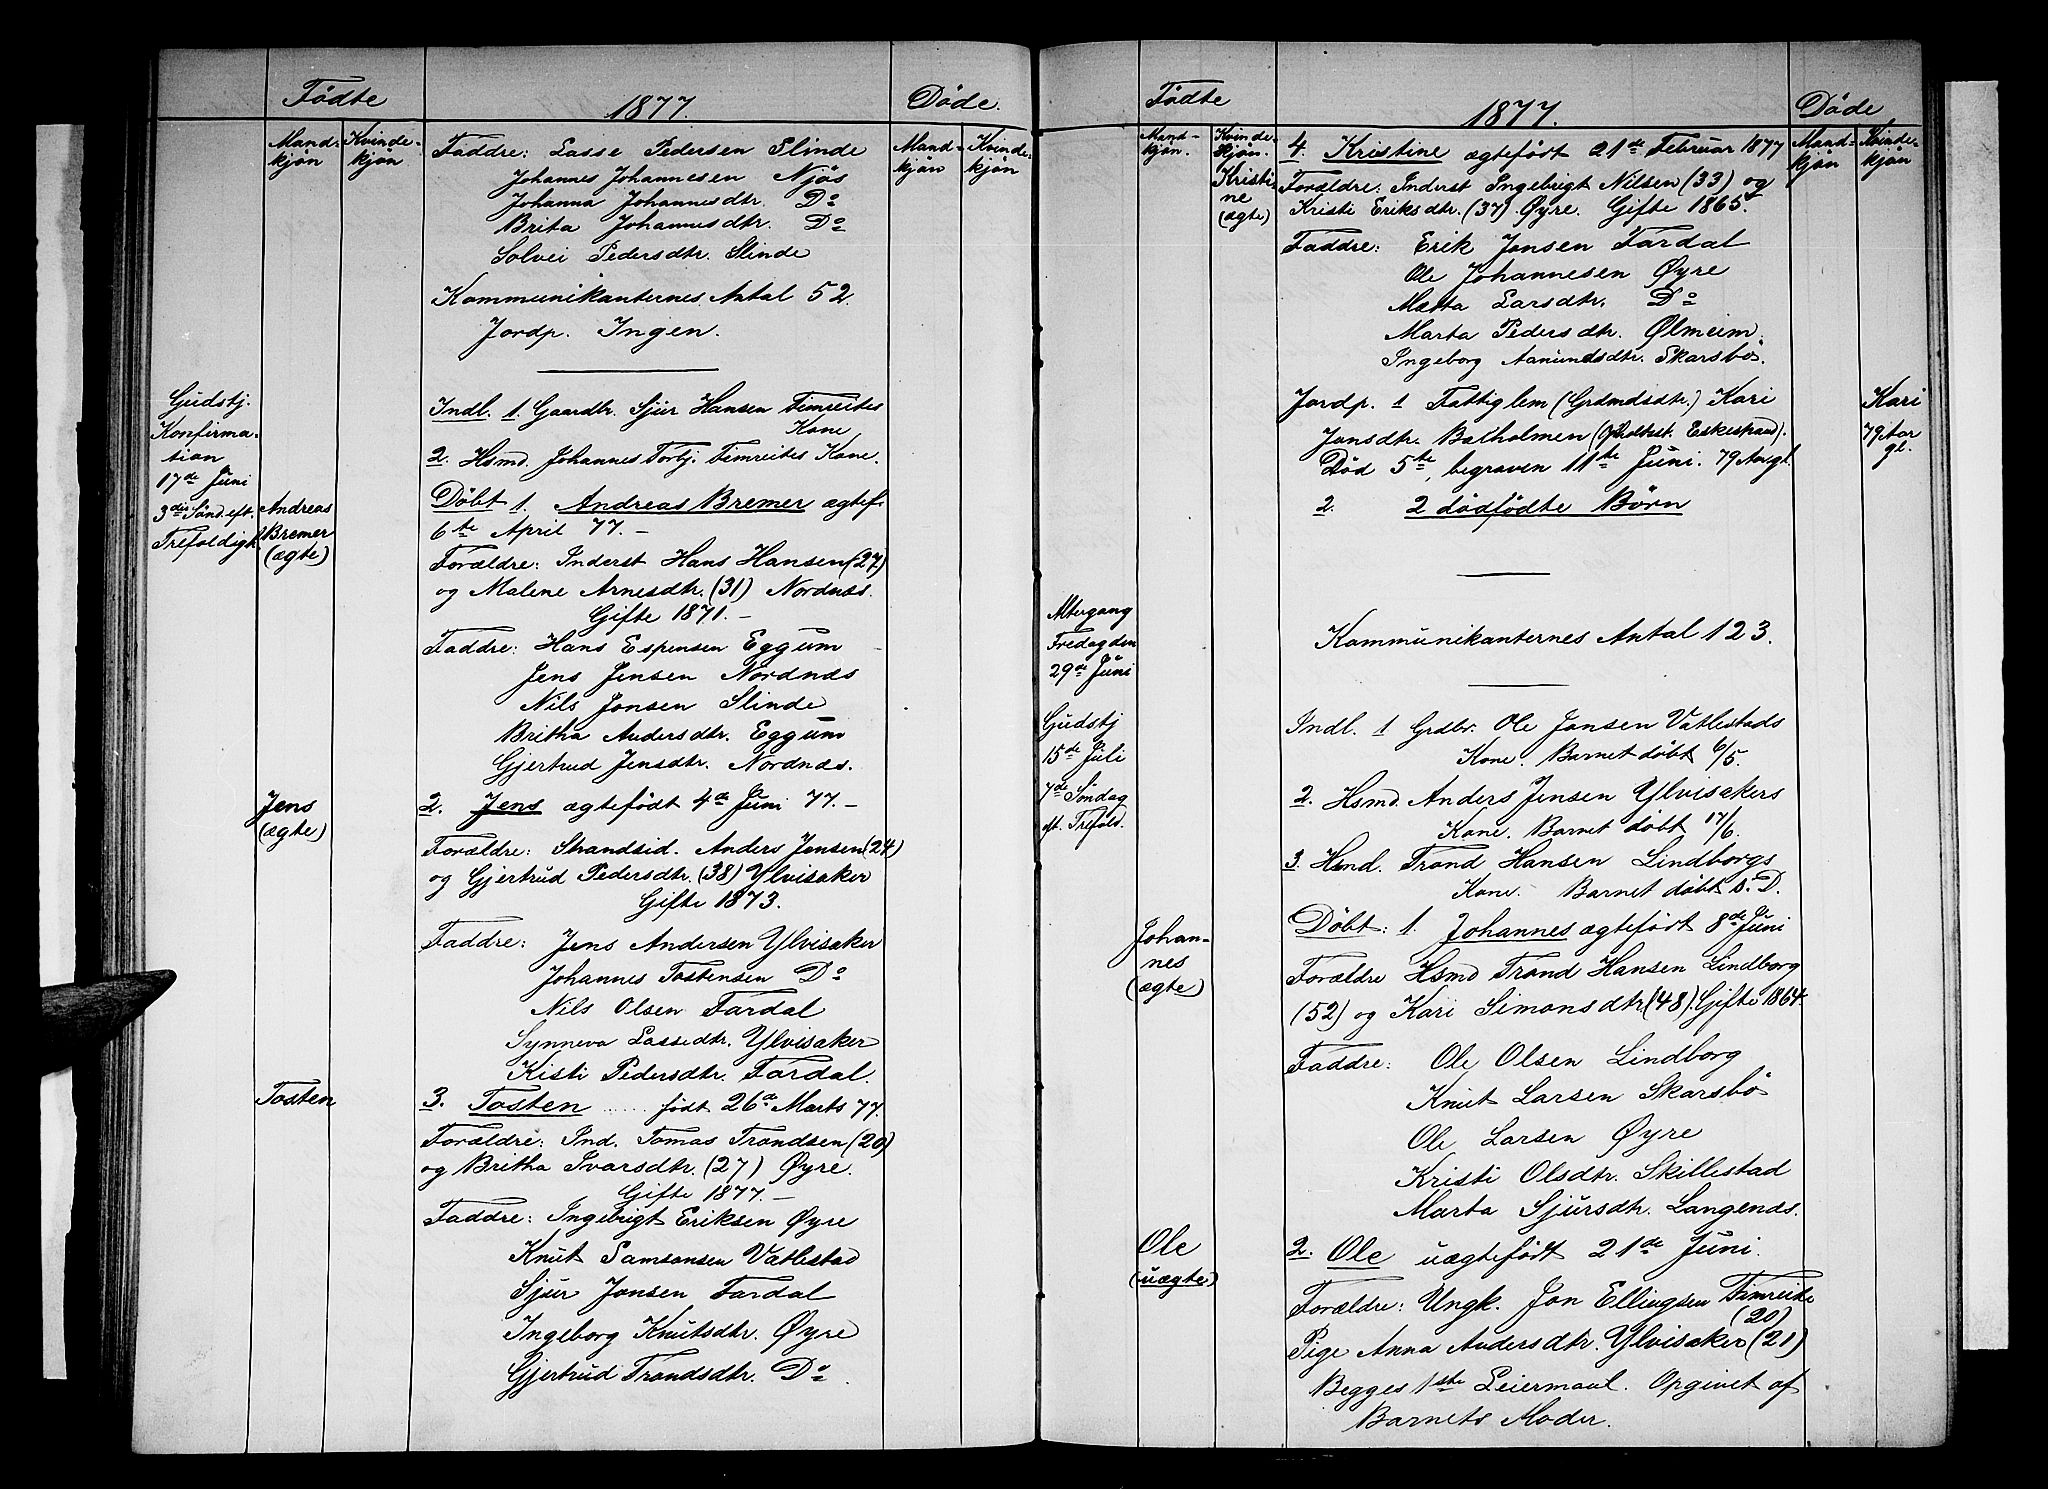 Födte
1877.
Döde.
Mand-
kjön
Kvinde-
kjön
Mand-
kjön
Kvinde-
kjön
Faddre: Lasse Pedersen Slinde
Johannes Johannesen Njös
Johanna Johannesdtr. Do
Brita Johannesdtr. Do
Solvei Pedersdtr. Slinde
Kommunikanternes Antal 52.
Jordp. Ingen.
Gudstj.
Konfirma-
tion
17de Juni
3die Sönd. eft.
Trefoldigh.
Indl. 1. Gaardbr. Sjur Hansen Fimreites
Kone
2. Hsmd. Johannes Torbj. Fimreites Kone.
Andreas
Bremer
(ægte)
Döbt 1. Andreas Bremer ægtef.
6te April 77.-
Forældre: Inderst Hans Hansen (27)
og Malene Arnesdtr. (31) Nordnæs.
Gifte 1871.-
Faddre: Hans Espensen Eggum
Jens Jensen Nordnæs
Nils Jonsen Slinde
Britha Andersdtr. Eggum
Gjertrud Jensdtr. Nordnæs.
Jens
(ægte)
2. Jens ægtefödt 4de Juni 77.-
Forældre: Strandsid. Anders Jensen (24)
og Gjertrud Pedersdtr. (38) Ylvisaker
Gifte 1873.
Faddre: Jens Andersen Ylvisaker
Johannes Tostensen Do
Nils Olsen Fardal
Synneva Lassedtr. Ylvisaker
Kisti Pedersdtr. Fardal.
Tosten
3. Tosten ...... födt 26de Marts 77.
Forældre: Ind. Tomas Trondsen (20)
og Britha Ivarsdtr. (27) Øyre.
Gifte 1877.-
Faddre: Ingebrigt Eriksen Øyre
Knut Samsonsen Vatlestad
Sjur Jonsen Fardal
Ingeborg Knutsdtr. Øyre
Gjertrud Trondsdtr. Do.
Fødte
1877.
Döde,
Mand-
kjön.
Kvinde-
kjön.
Mand-
kjön
Kvinde-
kjön
Kristi-
ne
(ægte)
4. Kristine ægtefödt 21de Februar 1877
Forældre: Inderst Ingebrigt Nilsen (33) og
Kristi Eriksdtr. (37) Øyre. Gifte 1865.
Faddre: Erik Jonsen Fardal
Ole Johannesen Øyre
Mætta Larsdtr. Do
Marta Pedersdtr. Ølmeim.
Ingeborg Aamundsdtr. Skarsbö.
Kari
79 Aar
gl.
Jordp. 1 Fattiglem (Grdmdsdtr.) Kari
Jonsdtr. Bækholmen Eskestrand).
Död 5te, begraven 11te Juni. 79 Aar gl.
2. 2 dödfödte Börn
Altergang
Fredag den
29de Juni
Kommunikanternes Antal 123.
Gudstj
15de Juli
7de Söndag
eft. Trefold.
Indl. 1 Grdbr. Ole Jonsen Vatlestads
Kone. Barnet döbt 6/5.
2. Hsmd. Anders Jensen Ylvisakers
Kone. Barnet döbt 17/6.
3. Hsmd. Trond Hansen Lindborgs
Kone. Barnet döbt s. D.
Johan-
nes
(ægte)
Döbt: 1. Johannes ægtefödt 8de Juni
Forældre Hsmd Trond Hansen Lindborg
(52) og Kari Simonsdtr. (48). Gifte 1864.
Faddre: Ole Olsen Lindborg
Knut Larsen Skarsbö
Ole Larsen Øyre
Kristi Olsdtr. Skillestad
Marta Sjursdtr. Langenæs.
Ole
(uægte)
2. Ole uægtefödt 21de Juni.
Forældre: Ungk. Jon Ellingsen Fimreite
(20)
Pige Anna Andersdtr. Ylvisaker (21)
Begges 1ste Leiermaal. Opgivet af
Barnets Moder.